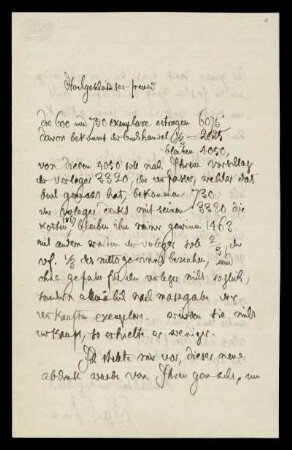 Hochgeehrtester freund
die 600 und 750 exemplare ertragen 6075
davon bekommt der buchhandel 1/3 = 2025
bleiben 4050,
von diesen 4050 solle nach Ihrem vorschlag
der verleger 3320, der verfasser, welcher das
buch gemacht hat, bekommen 730
der verleger deckt mit seinen 3320 die
kosten, bleiben ihm reiner gewinn 1468.
mit andern worten der verleger solle 2/3, der
vf. 1/3 des nettogewinns beziehen, und
ohne gefahr für den verleger nicht sogleich,
sondern nach massgabe der
verkauften exemplare. würden sie nicht
verkauft, so erhielte er weniger.
Ich stellte mir vor, dieser neue
abdruck werde von Ihnen gewünscht, um